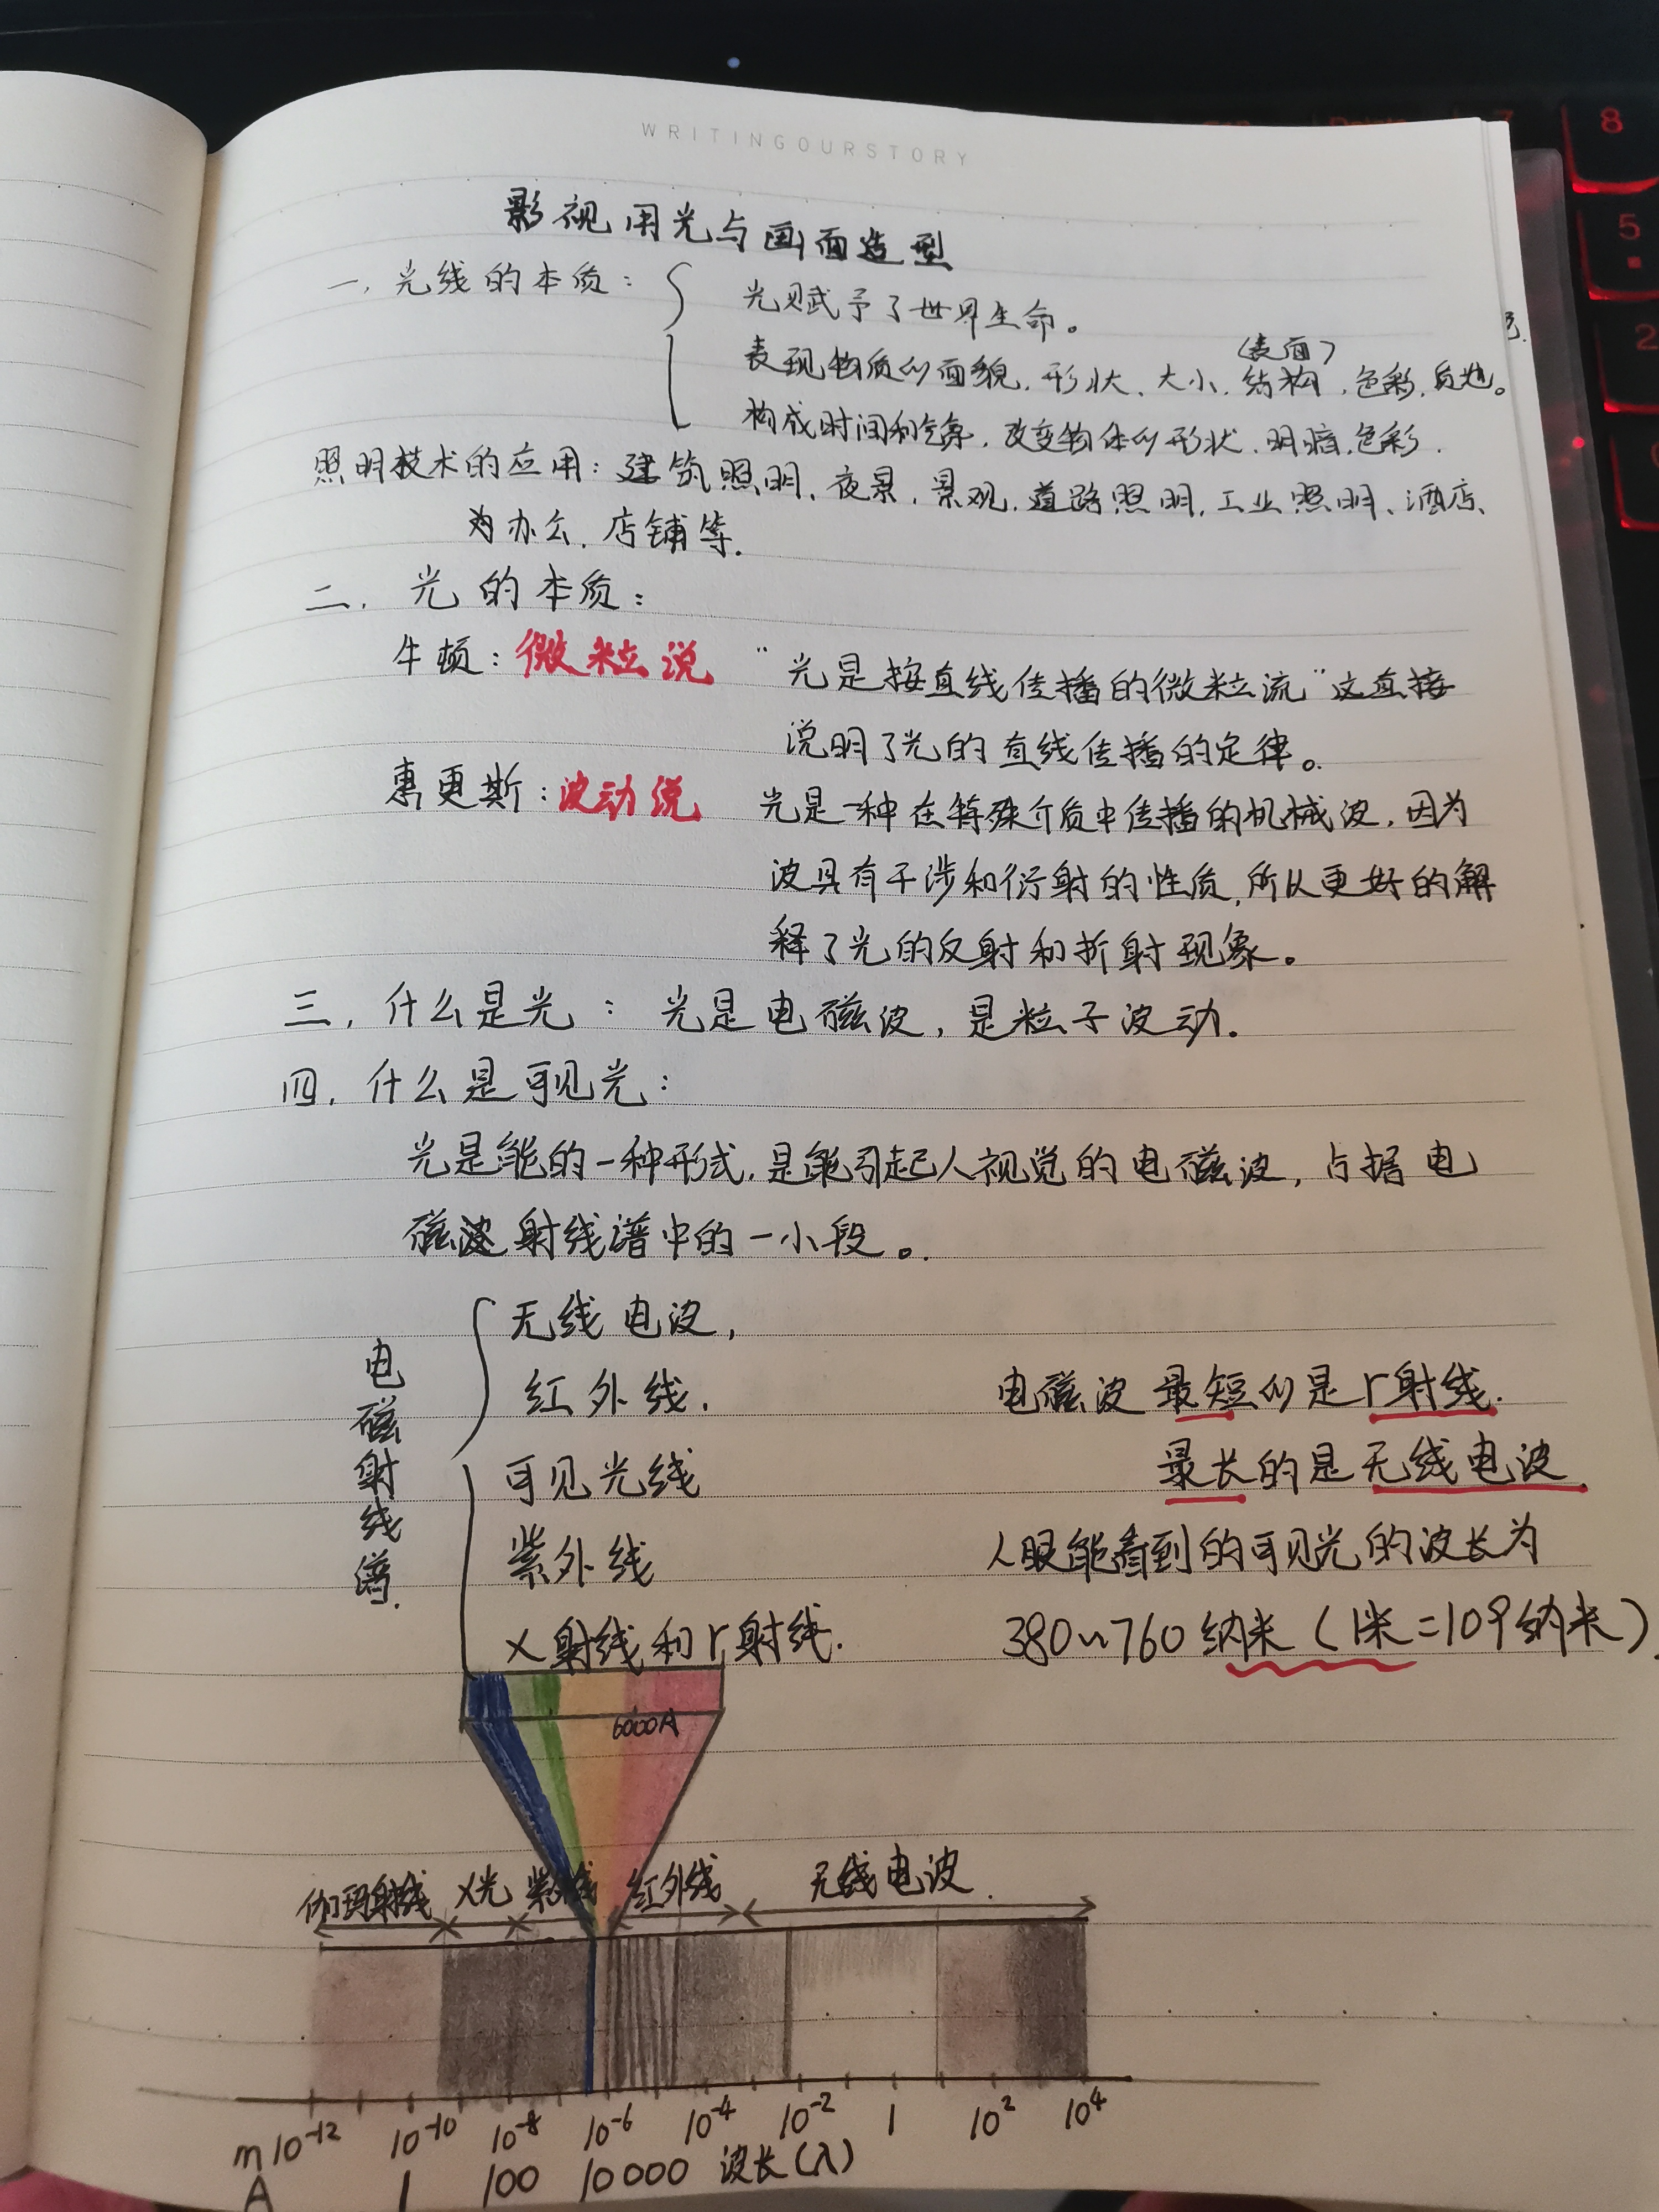 WRITINGOURSTORY
影视用光与画面造型
一、光线的本质：
光赋予了世界生命。
（表面）
表现物质的面貌、形状、大小、结构、色彩、质地。
构成时间和气象、改变物体的形状、明暗、色彩.
照明技术的应用：建筑照明、夜景、景观、道路照明、工业照明、酒店、
为办公、店铺等.
二、光的本质：
牛顿：微粒说 “光是按直线传播的微粒流”这直接
说明了光的直线传播的定律。
惠更斯：波动说 光是一种在特殊介质中传播的机械波，因为
波具有干涉和衍射的性质，所以更好的解
释了光的反射和折射现象。
三、什么是光：光是电磁波，是粒子波动.
四、什么是可见光：
光是能的一种形式，是能引起人视觉的电磁波，占据电
磁波射线谱中的一小段。
电磁射线谱.
无线电波，
红外线.
可见光线
紫外线
X射线和r射线.
电磁波最短的是r射线.
最长的是无线电波.
人眼能看到的可见光的波长为
380~760纳米（1米=109纳米）.
6000A
伽玛射线 X光 紫外线 红外线 无线电波.
m 10-12 10-10 10-8 10-6 10-4 10-2 1 10² 10⁴
A 1 100 10000 波长（λ）
8
5
2